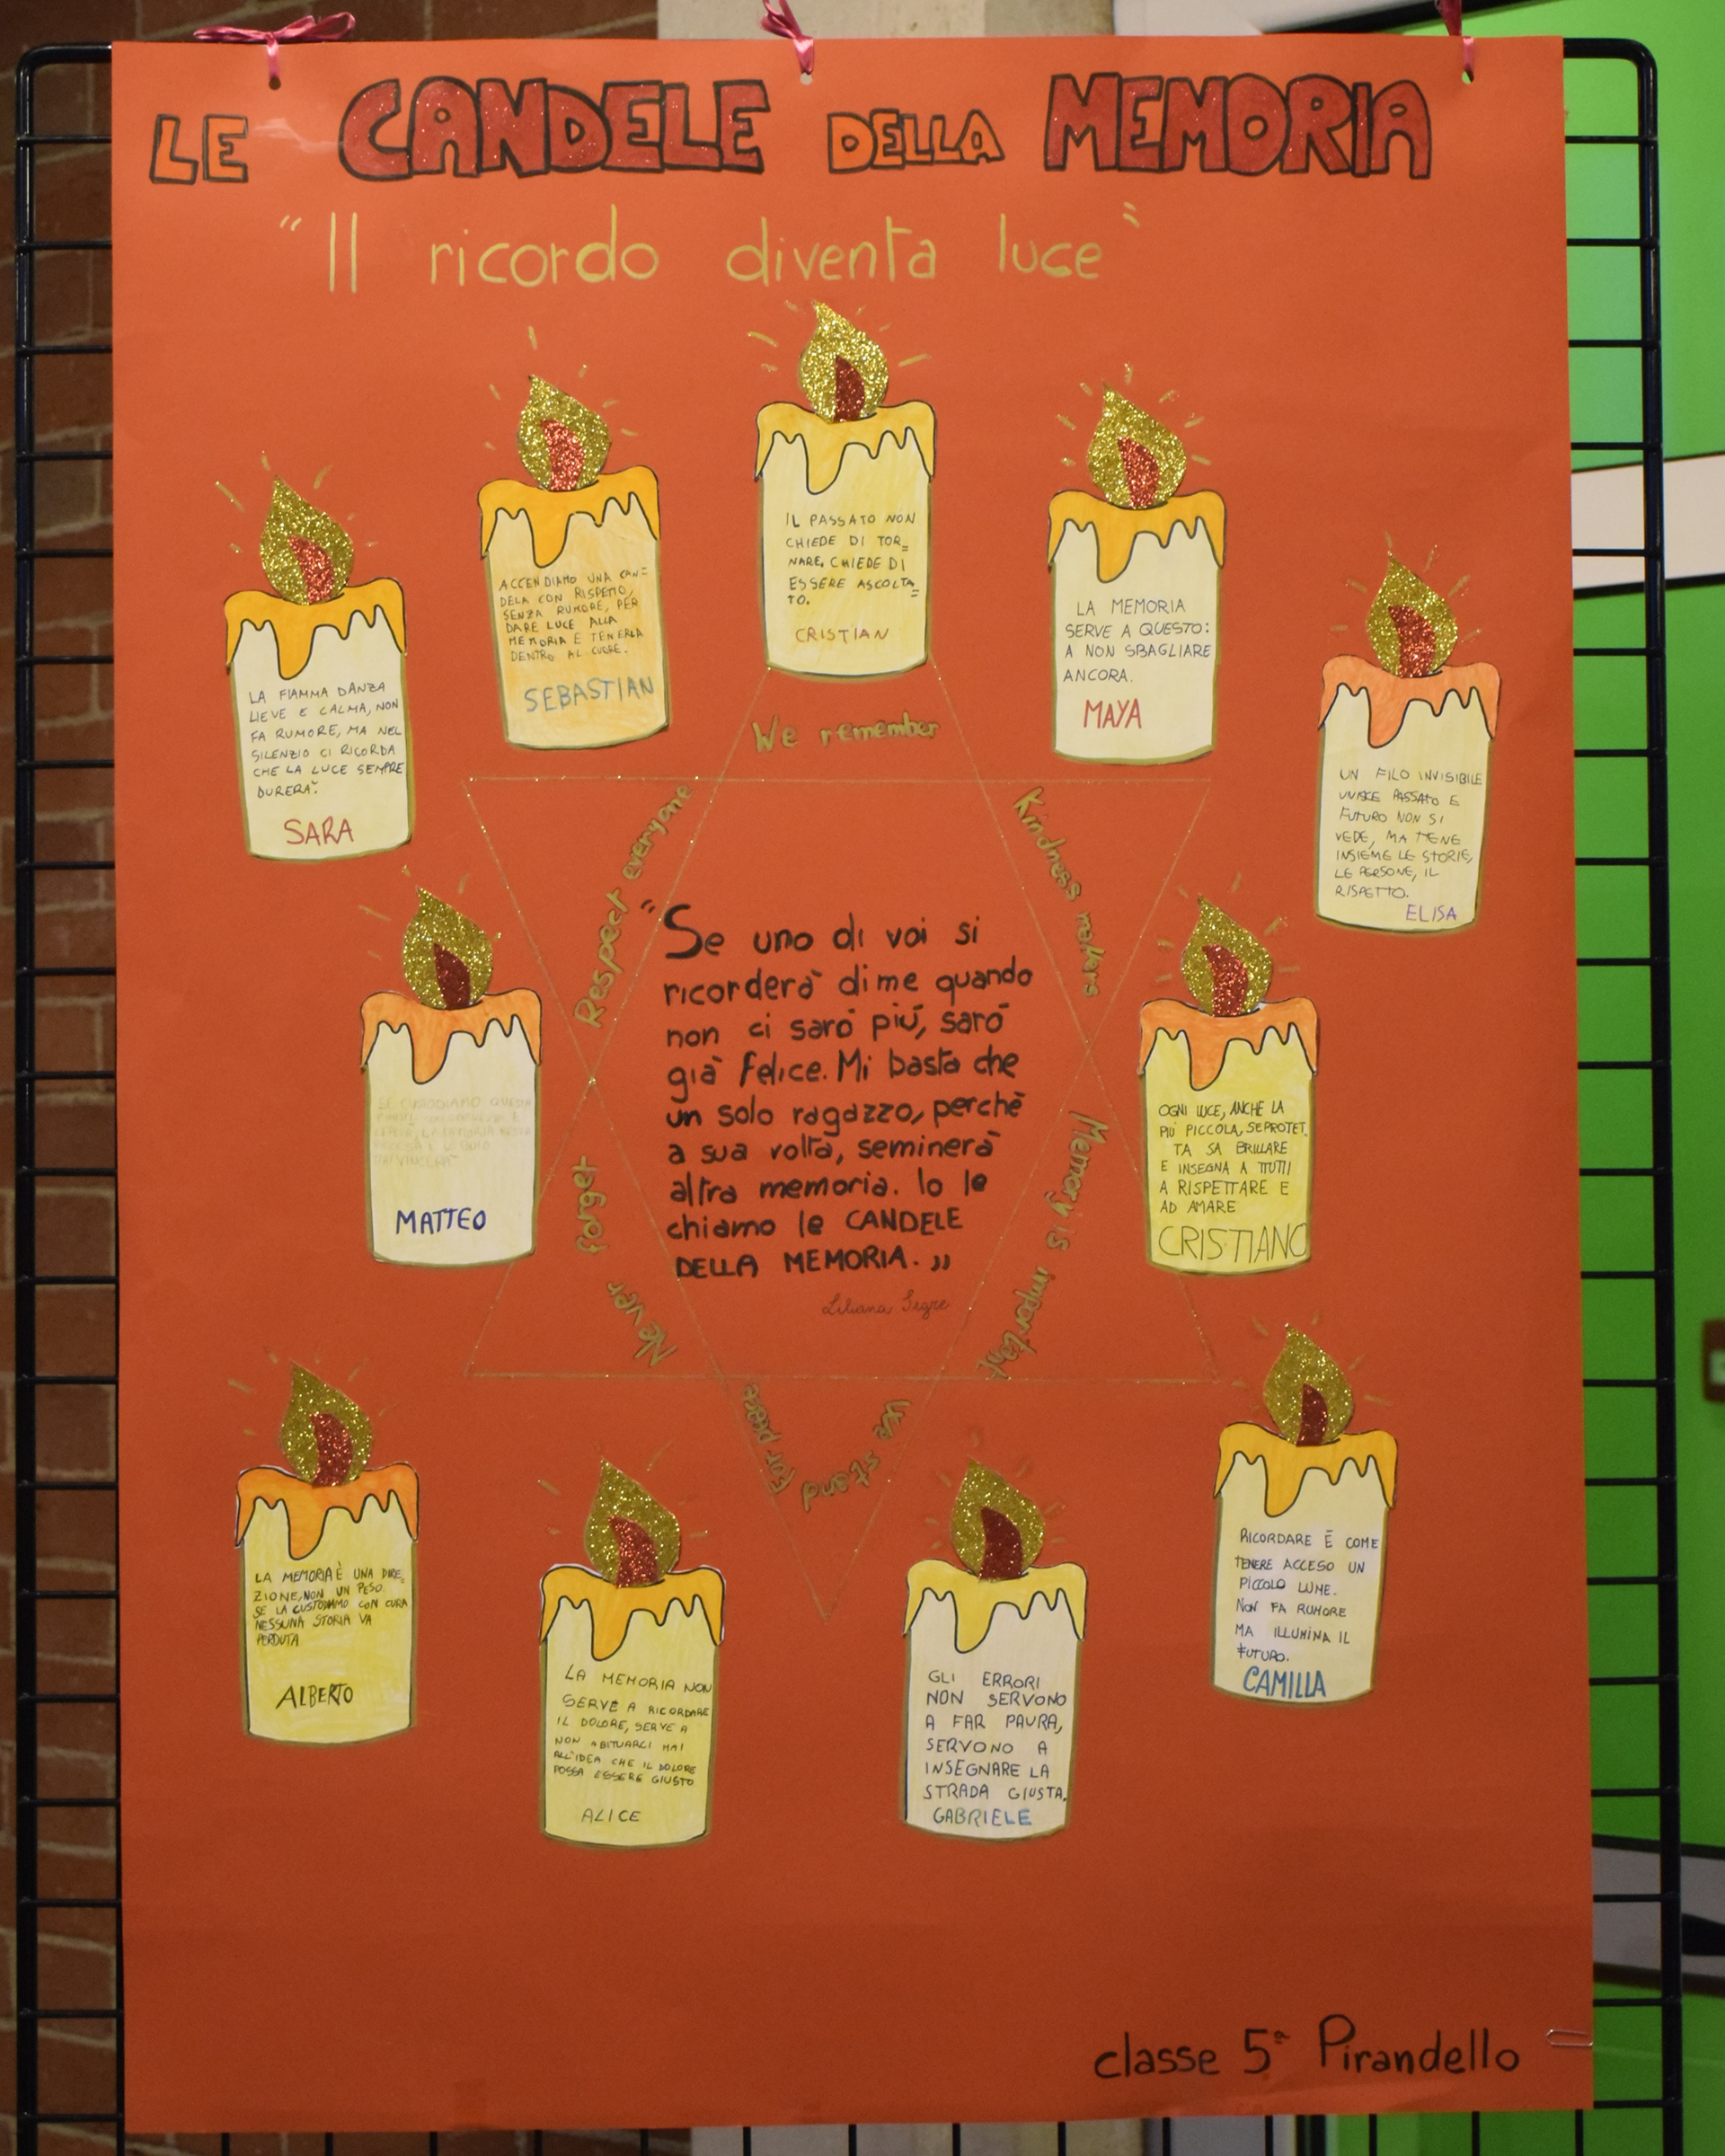 LE CANDELE DELLA MEMORIA
"Il ricordo diventa luce"
LA FIAMMA DANZA
LIEVE E CALMA, NON
FA RUMORE, MA NEL
SILENZIO CI RICORDA
CHE LA LUCE SEMPRE
DURERÀ.
SARA
ACCENDIAMO UNA CAN=
DELA CON RISPETTO,
SENZA RUMORE, PER
DARE LUCE ALLA
MEMORIA E TENERLA
DENTRO AL CUORE.
SEBASTIAN
IL PASSATO NON
CHIEDE DI TOR=
NARE, CHIEDE DI
ESSERE ASCOLTA=
TO.
CRISTIAN
LA MEMORIA
SERVE A QUESTO:
A NON SBAGLIARE
ANCORA.
MAYA
UN FILO INVISIBILE
UNISCE PASSATO E
FUTURO NON SI
VEDE, MA TIENE
INSIEME LE STORIE,
LE PERSONE, IL
RISPETTO.
ELISA
We remember
Respect everyone
Kindness matters
Memory is important
We stand for peace
Never forget
"Se uno di voi si
ricorderà di me quando
non ci sarò più, sarò
già felice. Mi basta che
un solo ragazzo, perchè
a sua volta, seminerà
altra memoria. Io le
chiamo le CANDELE
DELLA MEMORIA."
Liliana Segre
SE CUSTODIAMO QUESTA
MATTEO
OGNI LUCE, ANCHE LA
PIÙ PICCOLA, SE PROTET
TA SA BRILLARE
E INSEGNA A TUTTI
A RISPETTARE E
AD AMARE
CRISTIANO
LA MEMORIA È UNA DIRE=
ZIONE, NON UN PESO.
SE LA CUSTODIAMO CON CURA
NESSUNA STORIA VA
PERDUTA
ALBERTO
LA MEMORIA NON
SERVE A RICORDARE
IL DOLORE, SERVE A
NON ABITUARCI MAI
ALL'IDEA CHE IL DOLORE
POSSA ESSERE GIUSTO
ALICE
GLI ERRORI
NON SERVONO
A FAR PAURA,
SERVONO A
INSEGNARE LA
STRADA GIUSTA.
GABRIELE
RICORDARE È COME
TENERE ACCESO UN
PICCOLO LUME.
NON FA RUMORE
MA ILLUMINA IL
FUTURO.
CAMILLA
classe 5ª Pirandello